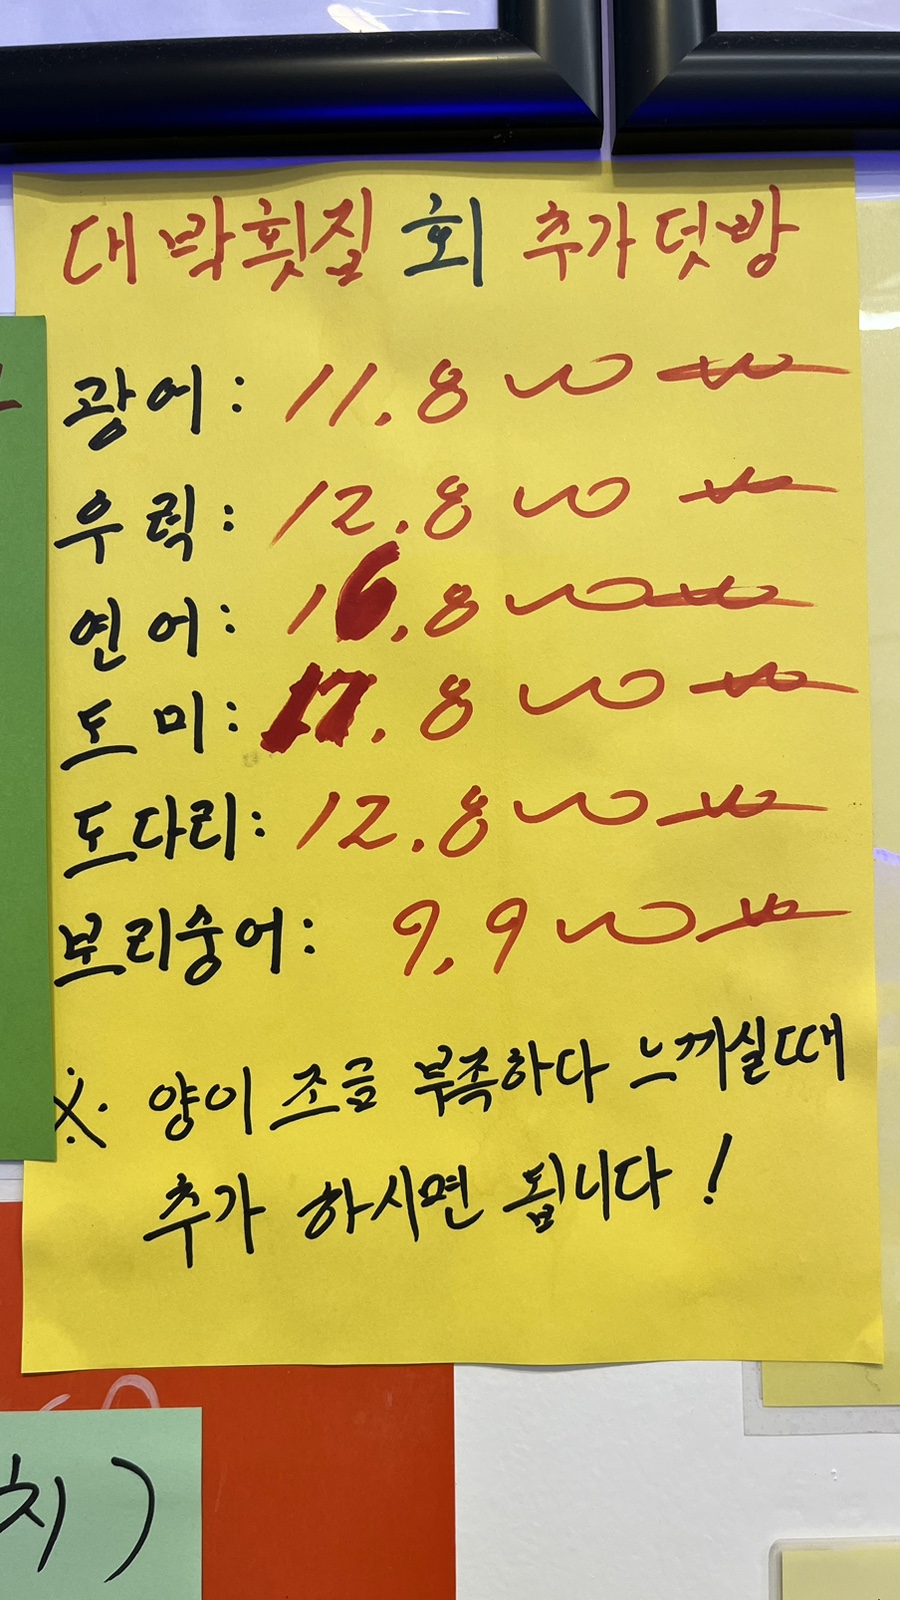 대박횟집 회 추가덧방
광어: 11.800 ₩
우럭: 12.800 ₩
연어: 16.800 ₩
도미: 17.800 ₩
도다리: 12.800 ₩
보리숭어: 9.900 ₩
※ 양이 조금 부족하다 느끼실때
추가 하시면 됩니다!
치)